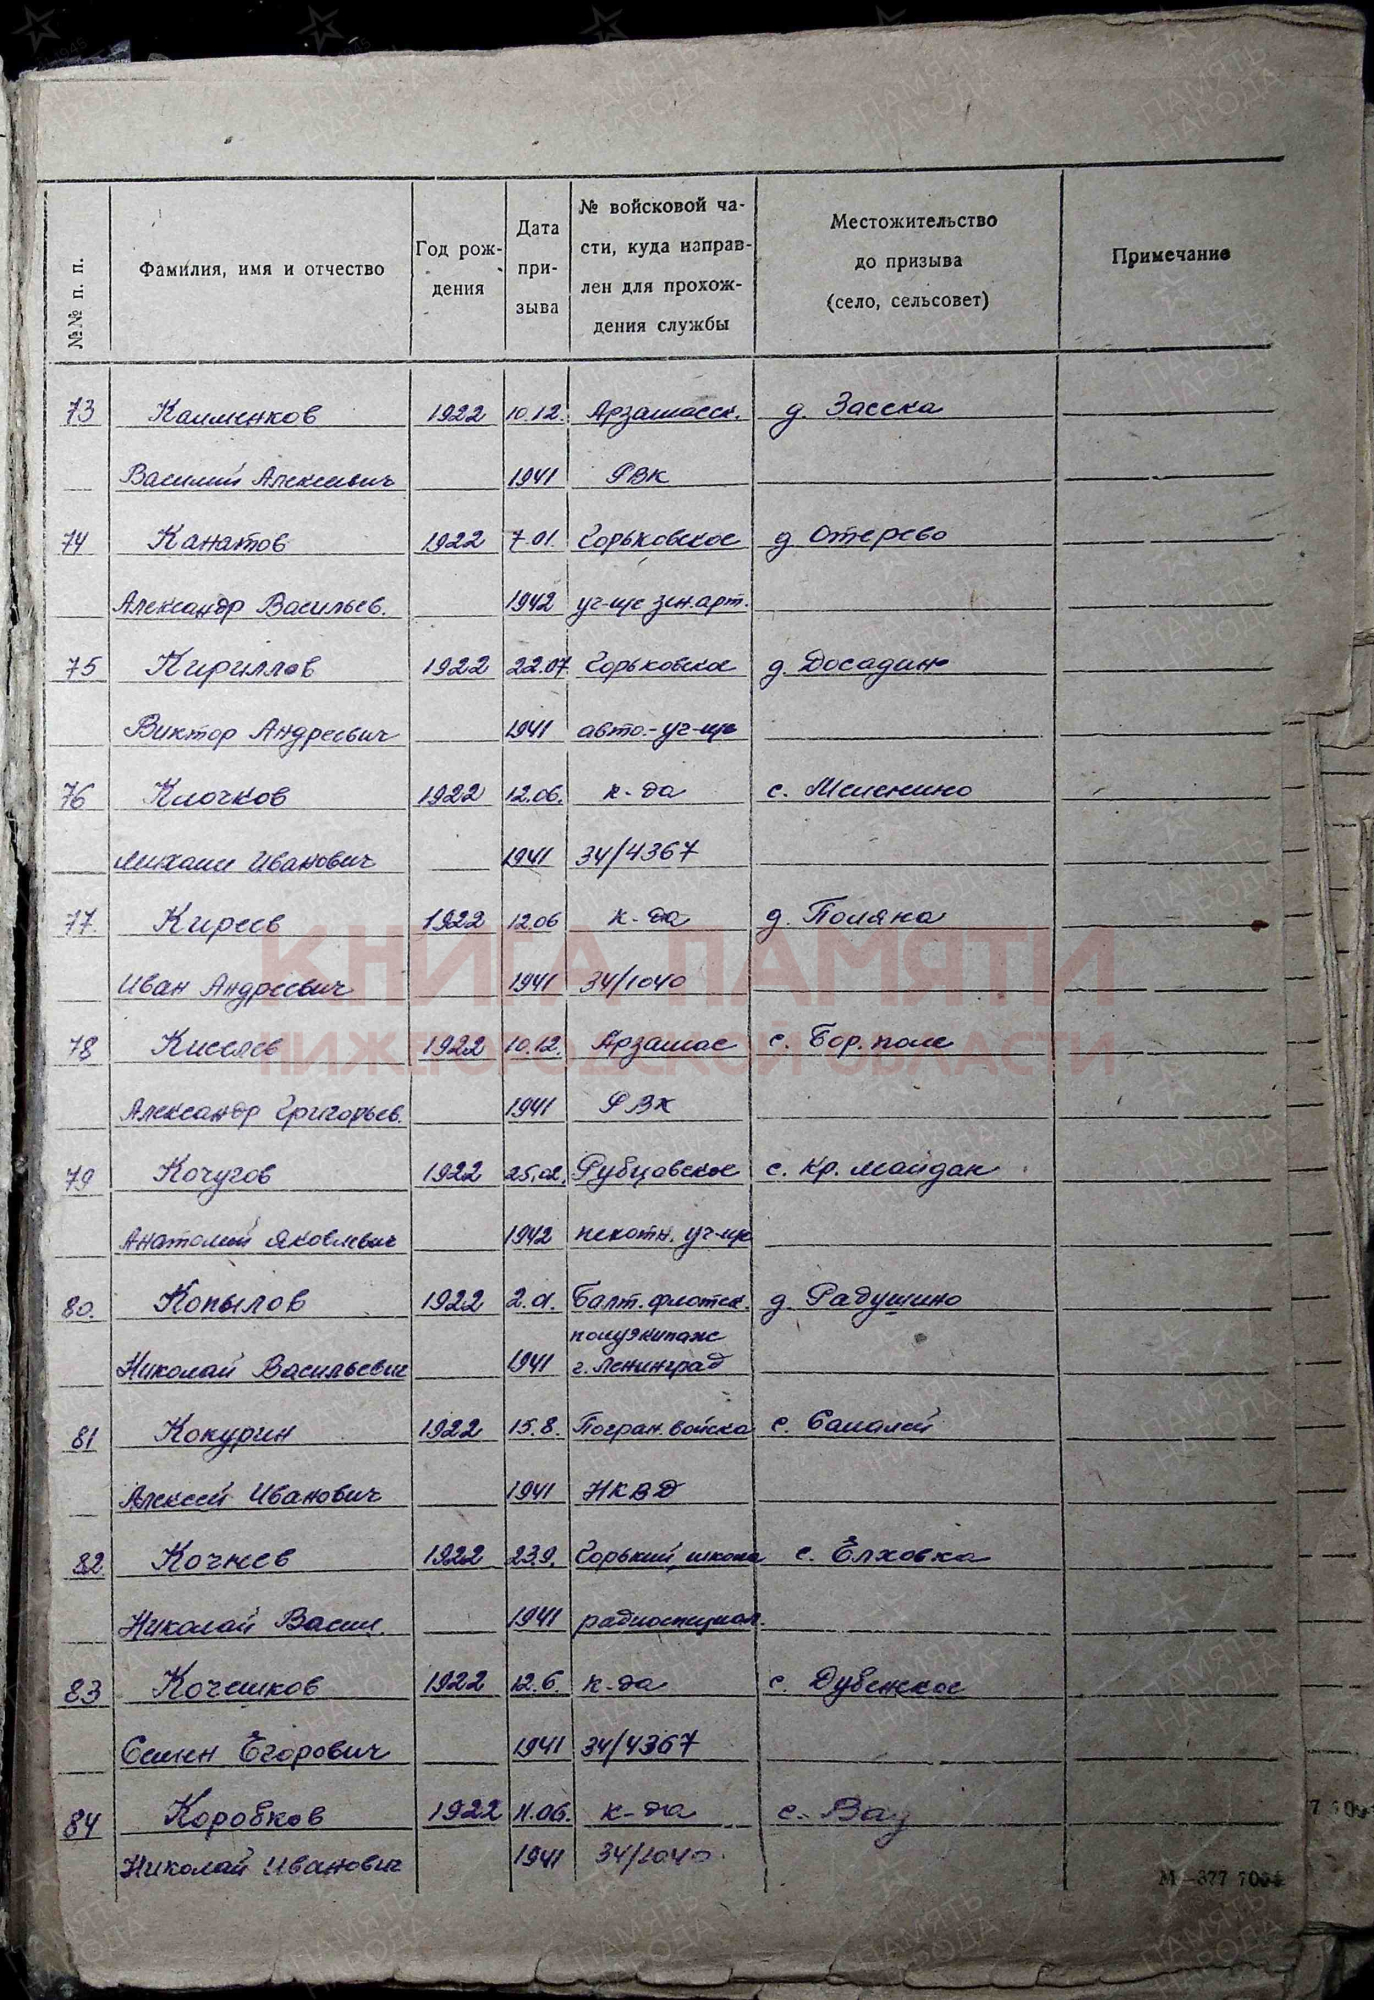 №№ п. п.
Фамилия, имя и отчество
Год рож-
дения
Дата
при-
зыва
№ войсковой ча-
сти, куда направ-
лен для прохож-
дения службы
Местожительство
до призыва
(село, сельсовет)
Примечание
73 Каименков 1922 10.12. Арзамасск. д. Засека
Василий Алексеевич 1941 РВК
74 Канатов 1922 7.01. Горьковское д. Отерево
Александр Васильев. 1942 уч-ще зен.арт.
75 Кириллов 1922 22.07 Горьковское д. Досадино
Виктор Андреевич 1941 авто.-уч-ще
76 Клочков 1922 12.06. к-да с. Мелемино
Михаил Иванович 1941 34/4367
77. Киреев 1922 12.06 к-да д. Поляна
Иван Андреевич 1941 34/1040
КНИГА ПАМЯТИ
НИЖЕГОРОДСКОЙ ОБЛАСТИ
78 Киселев 1922 10.12. Арзамас с. Бор. поле
Александр Григорьев. 1941 РВК
79 Кочугов 1922 25.02. Рубцовское с. Кр. майдан
Анатолий Яковлевич 1942 пехотн. уч-ще
80. Копылов 1922 2.01. Балт. флотск. д. Радушино
полуэкипаж
Николай Васильевич 1941 г. Ленинград
81 Кокурин 1922 15.8. Погран. войска с. Саналей
Алексей Иванович 1941 НКВД
82 Кочнев 1922 23.9. Горький, школа с. Ёлховка
Николай Васил. 1941 радиоспециал.
83 Кочешков 1922 12.6. к-да с. Дубенское
Семен Егорович 1941 34/4367
84 Коробков 1922 11.06. к-да с. Вад
Николай Иванович 1941 34/1040
М—377 700
ПАМЯТЬ
НАРОДА